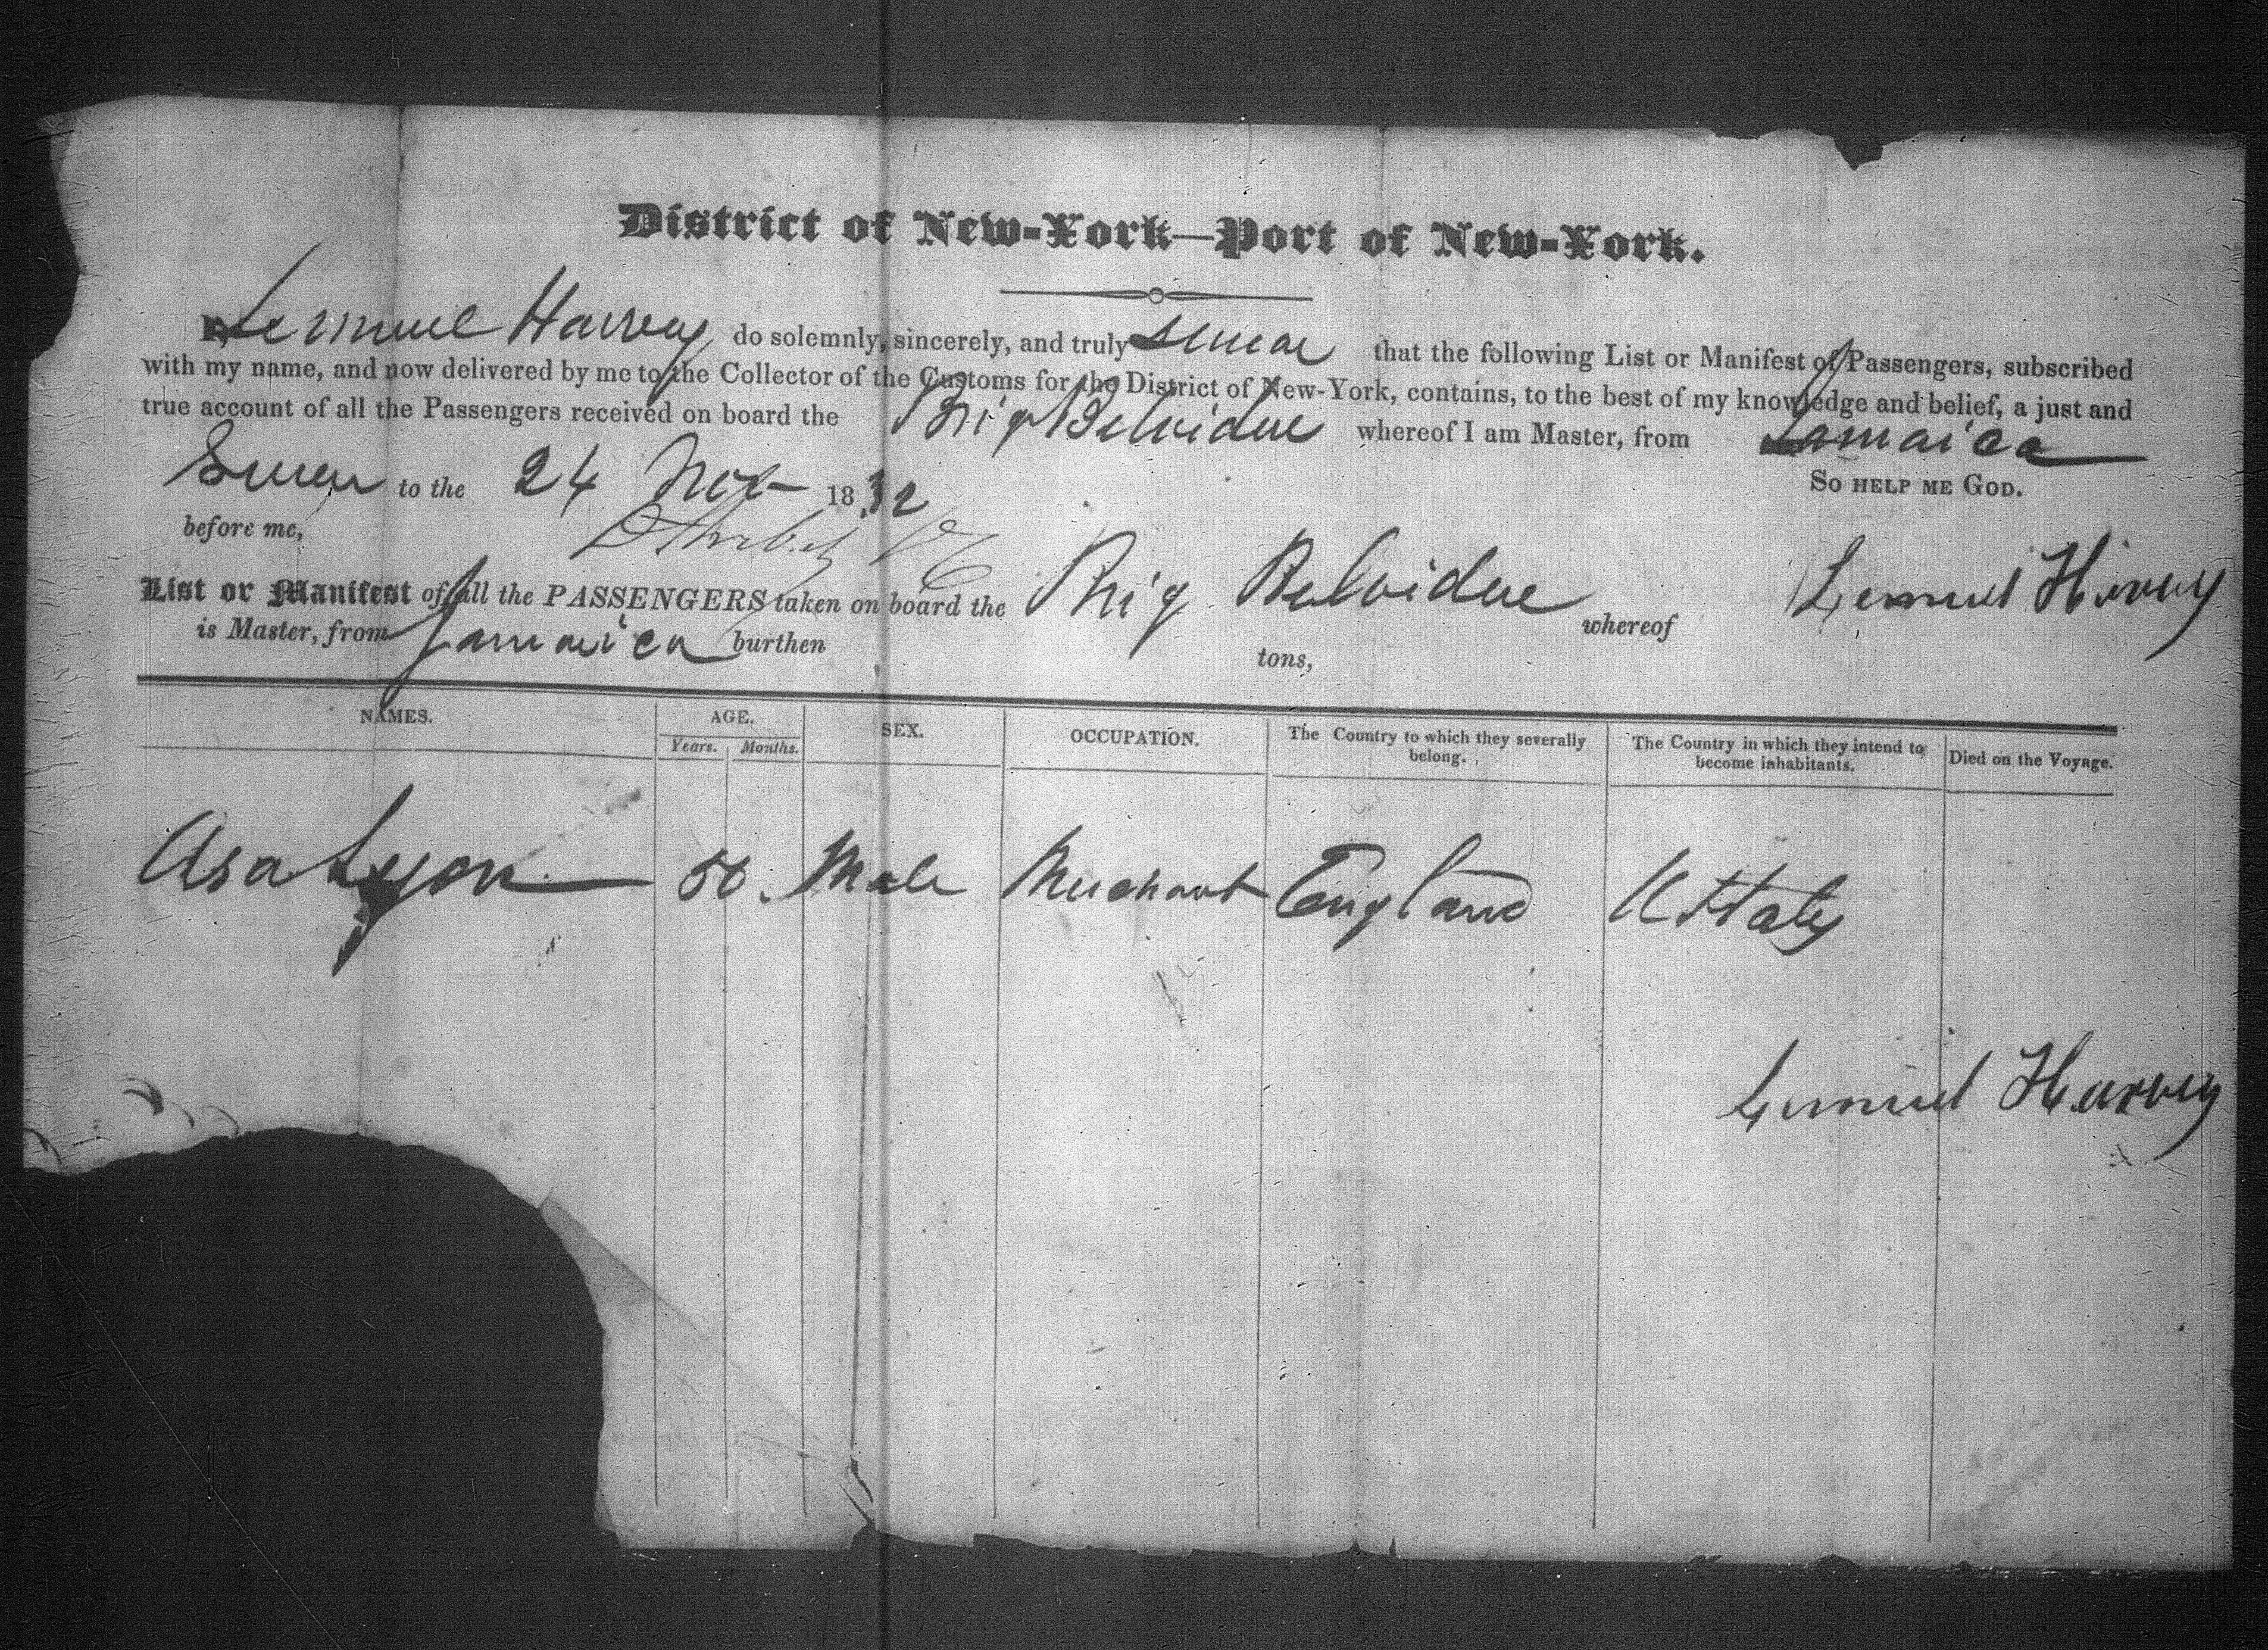 District of New-York—Port of New-York.
I, Lemuel Harvey do solemnly, sincerely, and truly swear that the following List or Manifest of Passengers, subscribed
with my name, and now delivered by me to the Collector of the Customs for the District of New-York, contains, to the best of my knowledge and belief, a just and
true account of all the Passengers received on board the Brig Belvidere whereof I am Master, from Jamaica
Sworn to the 24 Nov 1832 So HELP ME GOD.
before me, Lemuel Harvey
List or Manifest of all the PASSENGERS taken on board the Brig Belvidere whereof
is Master, from Jamaica burthen tons,
NAMES. AGE. SEX. OCCUPATION. The Country to which they severally belong. The Country in which they intend to become inhabitants. Died on the Voyage.
Years. Months.
Asa Lyon 50. Male Merchant England U States
Lemuel Harvey